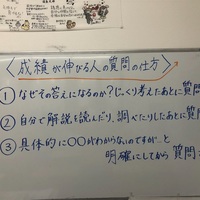 〈成績が伸びる人の質問の仕方〉
① なぜその答えになるのか？じっくり考えたあとに質問
② 自分で解説を読んだり、調べたりしたあとに質問
③ 具体的に〇〇がわからないのですが…と
明確にしてから質問